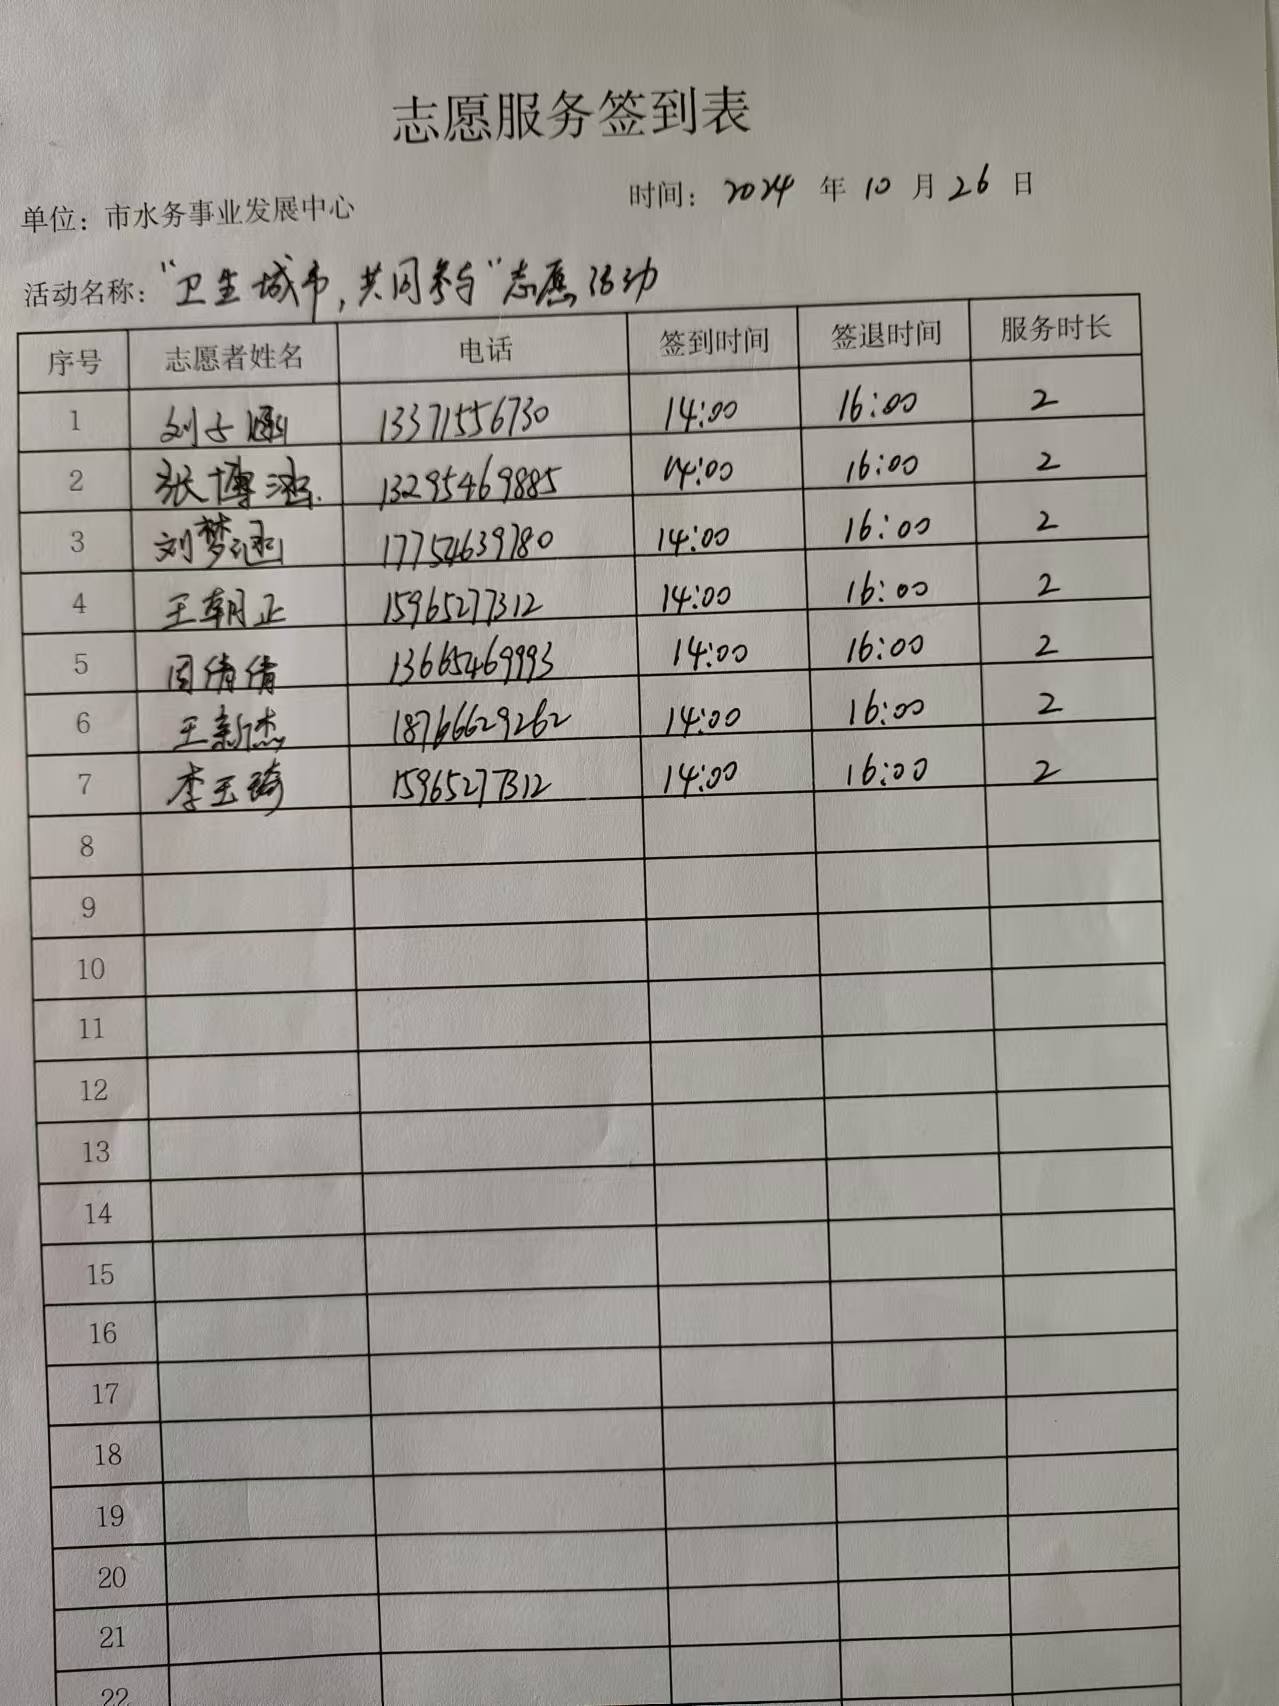 志愿服务签到表
单位：市水务事业发展中心 时间：2024 年 10 月 26 日
活动名称：“卫生城市，共同参与”志愿活动
序号 志愿者姓名 电话 签到时间 签退时间 服务时长
1 刘子涵 13371556730 14:00 16:00 2
2 张博涵 13295469885 14:00 16:00 2
3 刘梦涵 17754639780 14:00 16:00 2
4 王朝正 15965277312 14:00 16:00 2
5 周倩倩 13665469993 14:00 16:00 2
6 王新杰 18766629262 14:00 16:00 2
7 李玉琦 15965277312 14:00 16:00 2
8
9
10
11
12
13
14
15
16
17
18
19
20
21
22